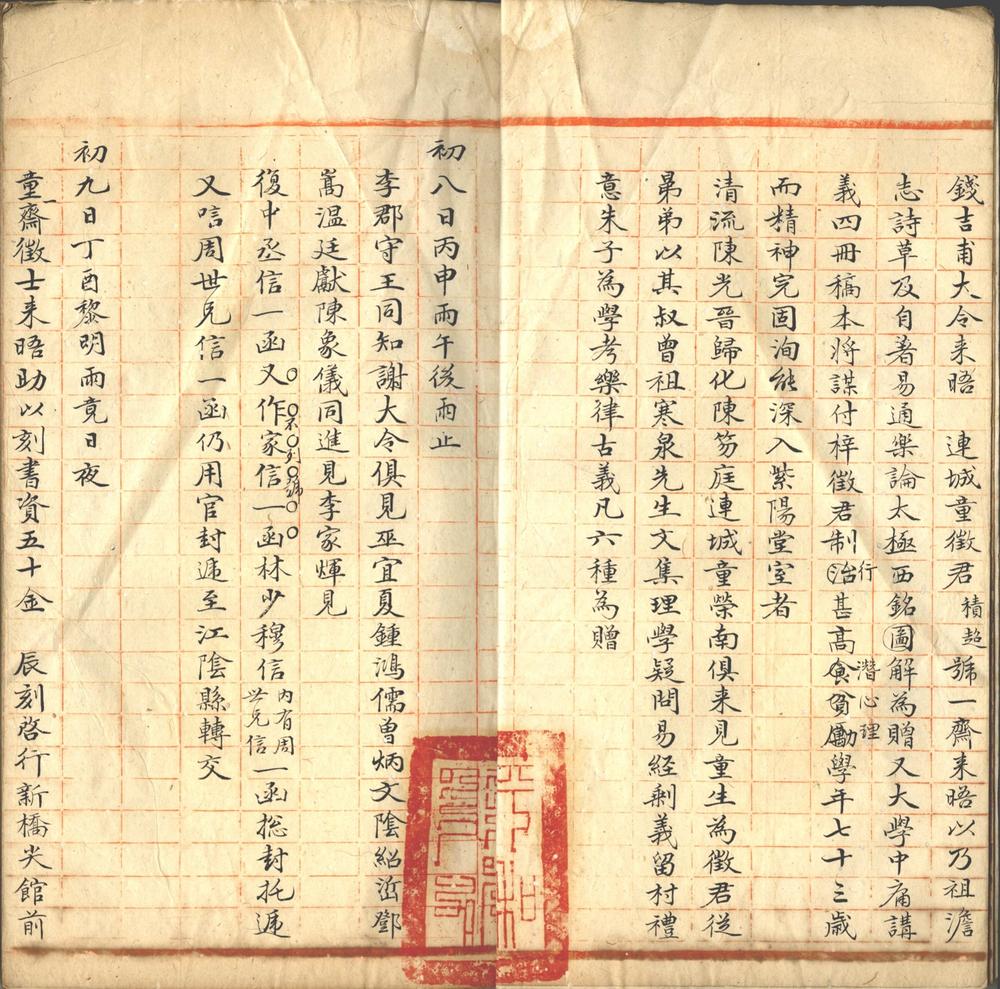 錢吉甫大令来晤　連城童徵君積超號一齋来晤以乃祖澹
志詩草及自著易通樂論太極西銘圖解為贈又大學中庸講
義四冊稿本將謀付梓徵君制行治甚高潛心理食貧勵學年七十三歲
而精神完固洵能深入紫陽堂室者
清流陳光晉歸化陳笏庭連城童榮南俱来見童生為徵君從
弟以其叔曾祖寒泉先生文集理學疑問易經剩義留村禮
意朱子為學考樂律古義凡六種為贈
初八日丙申雨午後雨止
李郡守王同知謝大令俱見巫宜夏鍾鴻儒曾炳文陰紹鄧
嵩溫廷獻陳象儀同進見李家煇見
復中丞信一函又作家信一函不列號林少穆信內有周世兄信一函捴封托遞
又唁周世兄信一函仍用官封遞至江陰縣轉交
初九日丁酉黎明雨竟日夜
童一齋徵士来晤助以刻書資五十金　辰刻啓行新橋尖館前